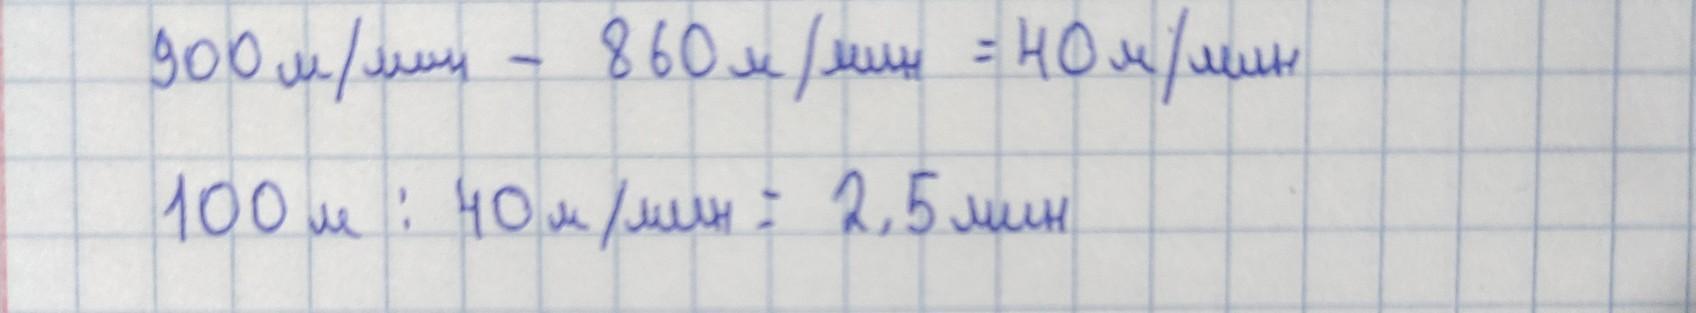 900м/мин - 860м/мин = 40м/мин
100м : 40м/мин = 2,5мин